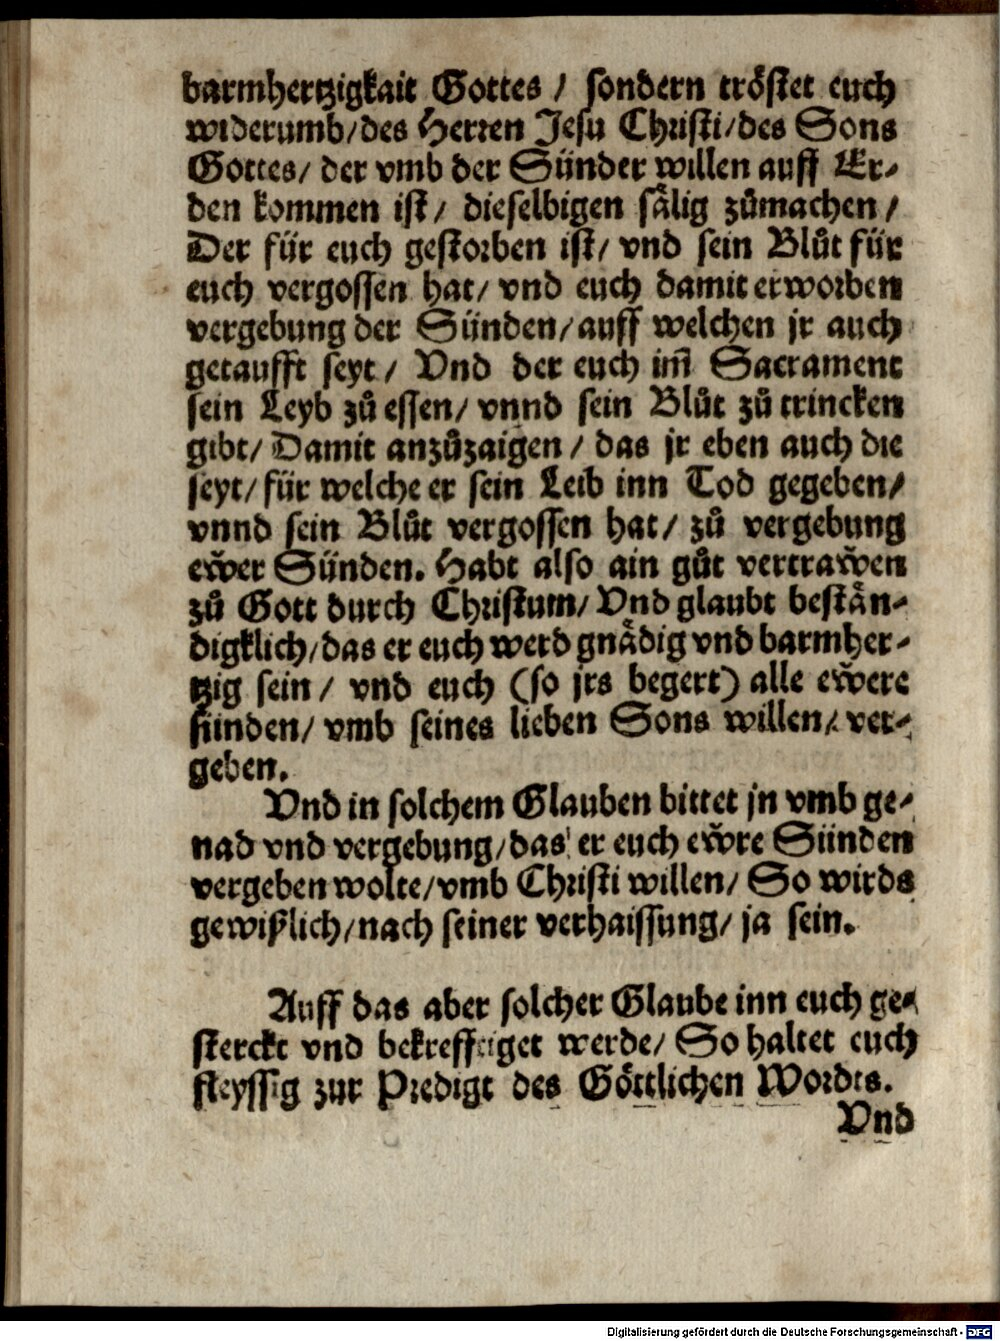 barmhertzigkait Gottes / sondern tröstet euch
widerumb/des Herren Jesu Christi/des Sons
Gottes/ der vmb der Sünder willen auff Er-
den kommen ist/ dieselbigen sälig zůmachen/
Der für euch gestorben ist/ vnd sein Blůt für
euch vergossen hat/ vnd euch damit erworben
vergebung der Sünden/auff welchen jr auch
getaufft seyt/ Vnd der euch im̃ Sacrament
sein Leyb zů essen/ vnnd sein Blůt zů trincken
gibt/ Damit anzůzaigen/ das jr eben auch die
seyt/ für welche er sein Leib inn Tod gegeben/
vnnd sein Blůt vergossen hat/ zů vergebung
ew̌er Sünden. Habt also ain gůt vertraw̌en
zů Gott durch Christum/ Vnd glaubt bestän-
digklich/das er euch werd gnädig vnd barmher-
tzig sein/ vnd euch (so jrs begert) alle ew̌ere
sünden/ vmb seines lieben Sons willen/ ver-
geben.
Vnd in solchem Glauben bittet jn vmb ge-
nad vnd vergebung/das er euch ew̌re Sünden
vergeben wolte/vmb Christi willen/ So wirds
gewißlich/nach seiner verhaissung/ ja sein.
Auff das aber solcher Glaube inn euch ge-
sterckt vnd bekrefftiget werde/ So haltet euch
fleyssig zur Predigt des Göttlichen Wordts.
Vnd
Digitalisierung gefördert durch die Deutsche Forschungsgemeinschaft - DFG